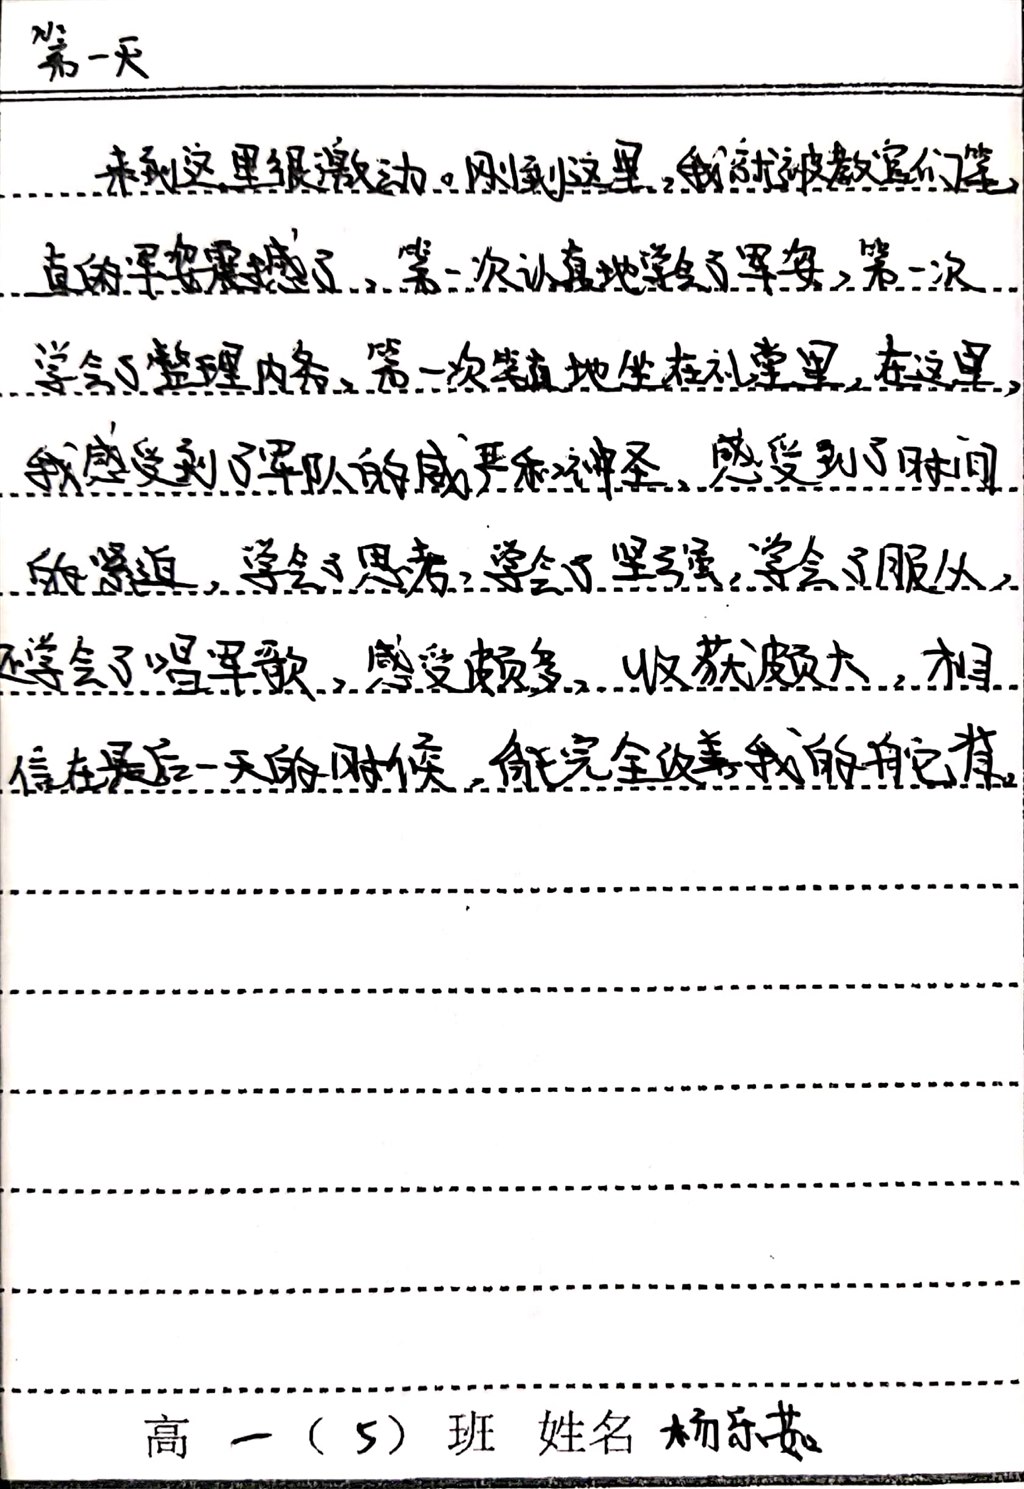 第一天
来到这里很激动。刚到这里，我就被教官们笔
直的军姿震撼了，第一次认真地学会了军姿，第一次
学会了整理内务，第一次笔直地坐在礼堂里，在这里，
我感受到了军队的威严和神圣，感受到了时间
的紧迫，学会了思考，学会了坚强，学会了服从，
还学会了唱军歌，感受颇多，收获颇大，相
信在最后一天的时候，能完全改善我的
高一（5）班 姓名 杨乐茹